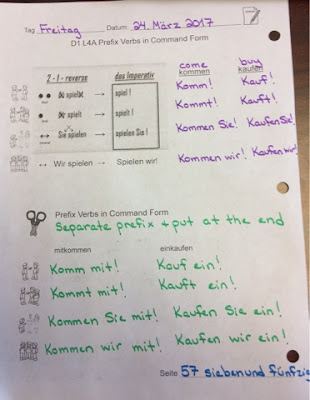 Tag Freitag Datum: 24. März 2017
D1 L4A Prefix Verbs in Command Form
come buy
kommen kaufen
2 - 1 - reverse das Imperativ
du spielst → spiel ! Komm! Kauf!
ihr spielt → spielt ! Kommt! Kauft!
Sie spielen → spielen Sie ! Kommen Sie! Kaufen Sie!
↔ Wir spielen → Spielen wir! Kommen wir! Kaufen wir!
Prefix Verbs in Command Form
Separate prefix + put at the end
mitkommen einkaufen
Komm mit! Kauf ein!
Kommt mit! Kauft ein!
Kommen Sie mit! Kaufen Sie ein!
Kommen wir mit! Kaufen wir ein!
Seite 57 siebenund fünfzig